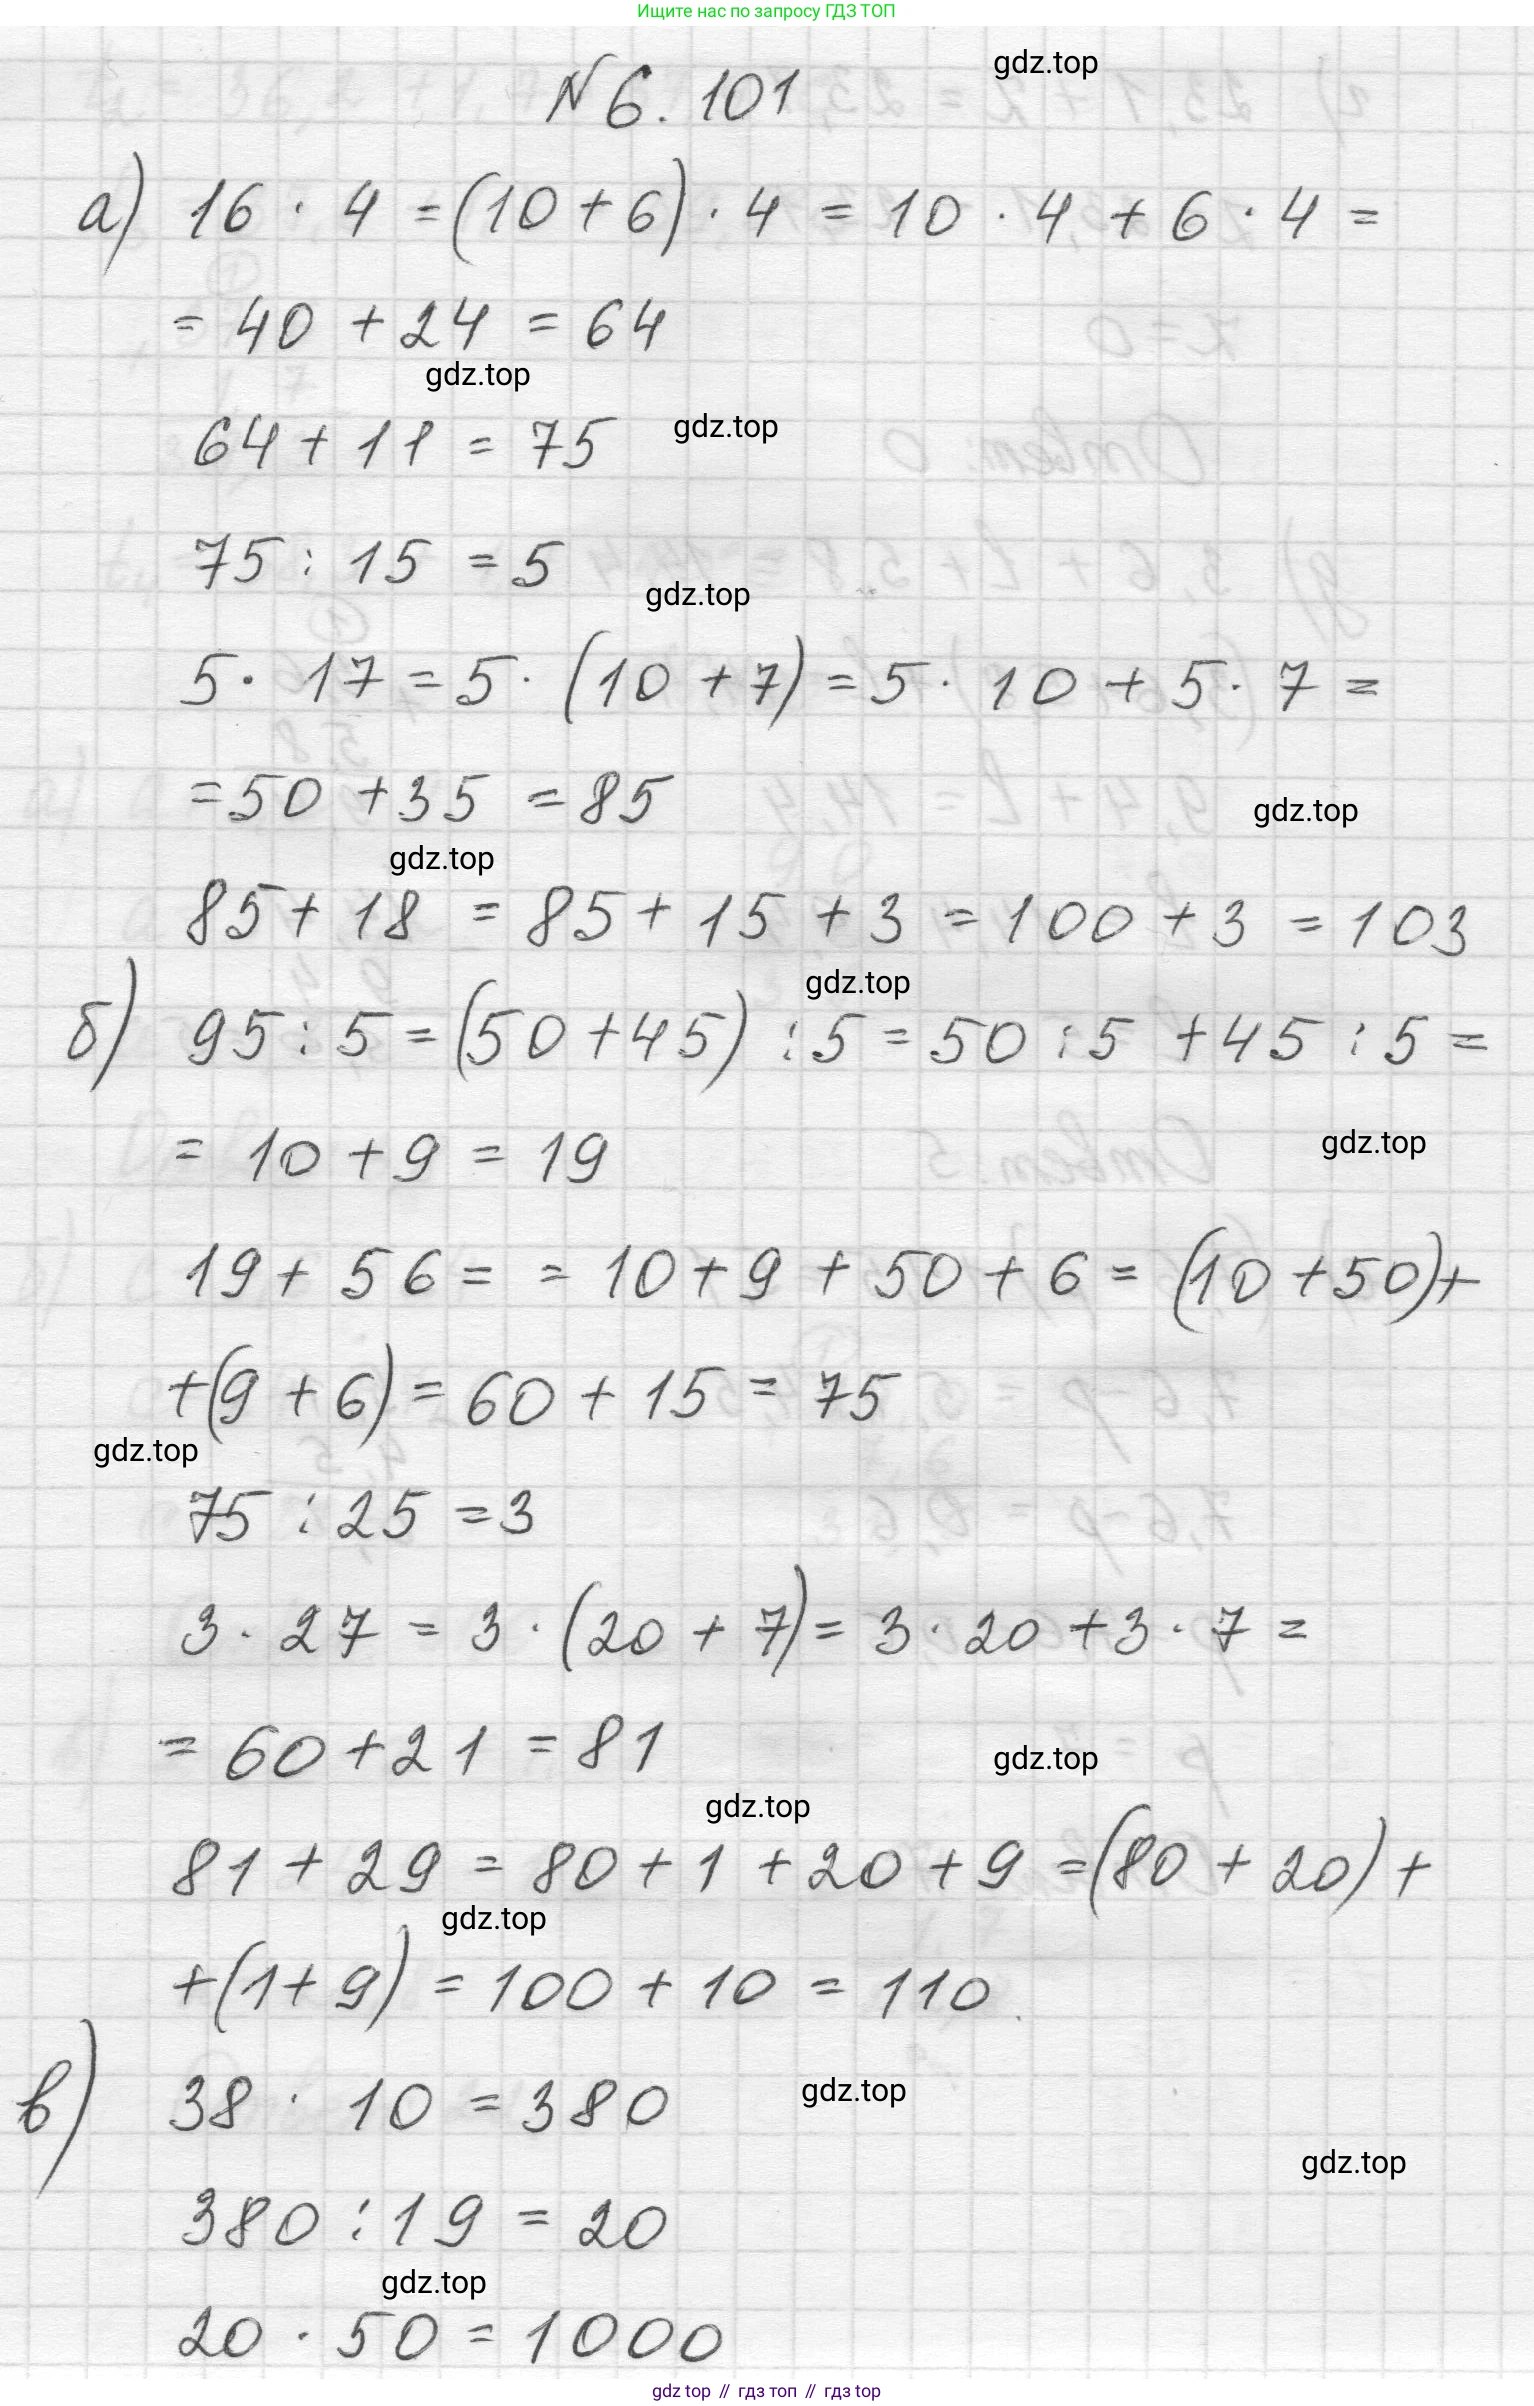 Ищите нас по запросу ГДЗ ТОП
gdz.top
№ 6.101
а) 16 · 4 = (10 + 6) · 4 = 10 · 4 + 6 · 4 =
= 40 + 24 = 64
gdz.top
64 + 11 = 75
gdz.top
75 : 15 = 5
gdz.top
5 · 17 = 5 · (10 + 7) = 5 · 10 + 5 · 7 =
= 50 + 35 = 85
gdz.top
gdz.top
85 + 18 = 85 + 15 + 3 = 100 + 3 = 103
gdz.top
б) 95 : 5 = (50 + 45) : 5 = 50 : 5 + 45 : 5 =
= 10 + 9 = 19
gdz.top
19 + 56 = = 10 + 9 + 50 + 6 = (10 + 50) +
+ (9 + 6) = 60 + 15 = 75
gdz.top
75 : 25 = 3
3 · 27 = 3 · (20 + 7) = 3 · 20 + 3 · 7 =
= 60 + 21 = 81
gdz.top
gdz.top
81 + 29 = 80 + 1 + 20 + 9 = (80 + 20) +
gdz.top
+ (1 + 9) = 100 + 10 = 110
в) 38 · 10 = 380
gdz.top
gdz.top
380 : 19 = 20
gdz.top
20 · 50 = 1000
gdz top // гдз топ // гдз top